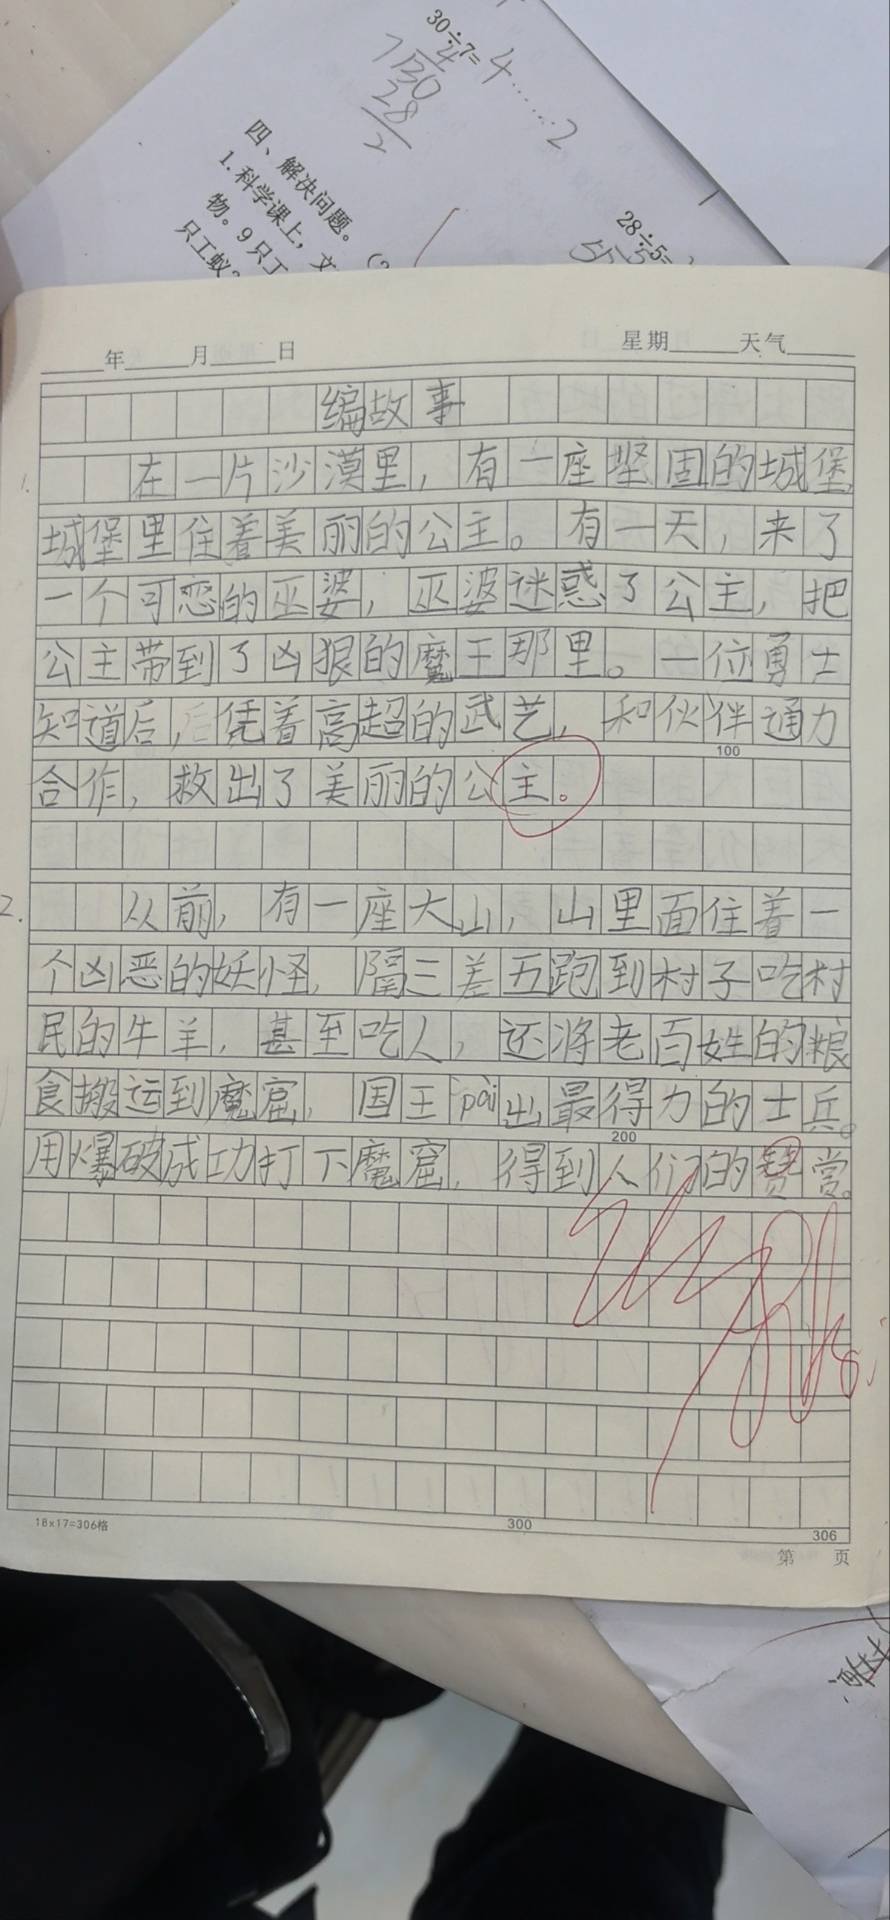 30÷7=4……2
4
7 30
28
2
四、解决问题。（2
1.科学课上，文
物。9只工
只工蚁。
28÷5=
年 月 日 星期 天气
编故事
1. 在一片沙漠里，有一座坚固的城堡,
城堡里住着美丽的公主。有一天，来了
一个可恋的巫婆，巫婆迷惑了公主，把
公主带到了凶狠的魔王那里。一位勇士
知道后，凭着高超的武艺，和伙伴通力
100
合作，救出了美丽的公主。
2. 从前，有一座大山，山里面住着一
个凶恶的妖怪，隔三差五跑到村子吃村
民的牛羊，甚至吃人，还将老百姓的粮
食搬运到魔窟，国王pài出最得力的士兵。
200
用爆破成功打下魔窟，得到人们的赞赏。
18×17=306格
300
306
第 页